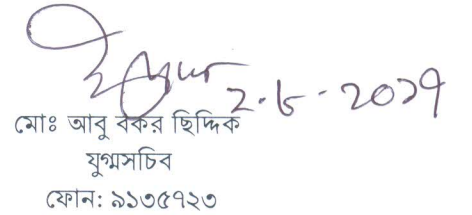 ২.৮.২০১৭
মোঃ আবু বকর ছিদ্দিক
যুগ্মসচিব
ফোন: ৯১৩৫৭২৩